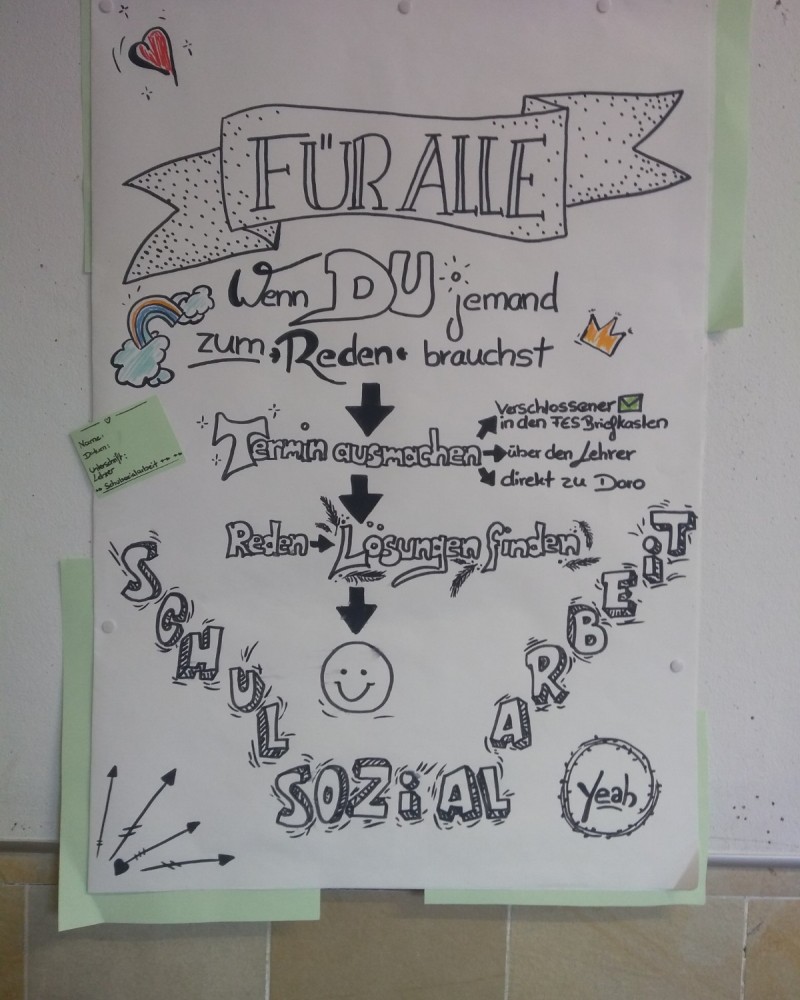 FÜR ALLE
Wenn DU jemand
zum Reden brauchst
Termin ausmachen
verschlossener
in den FES Briefkasten
über den Lehrer
direkt zu Doro
Name:
Datum:
Unterschrift:
Lehrer
Schulsozialarbeit
Reden Lösungen finden
SCHUL
SOZiAL
ARBEiT
Yeah